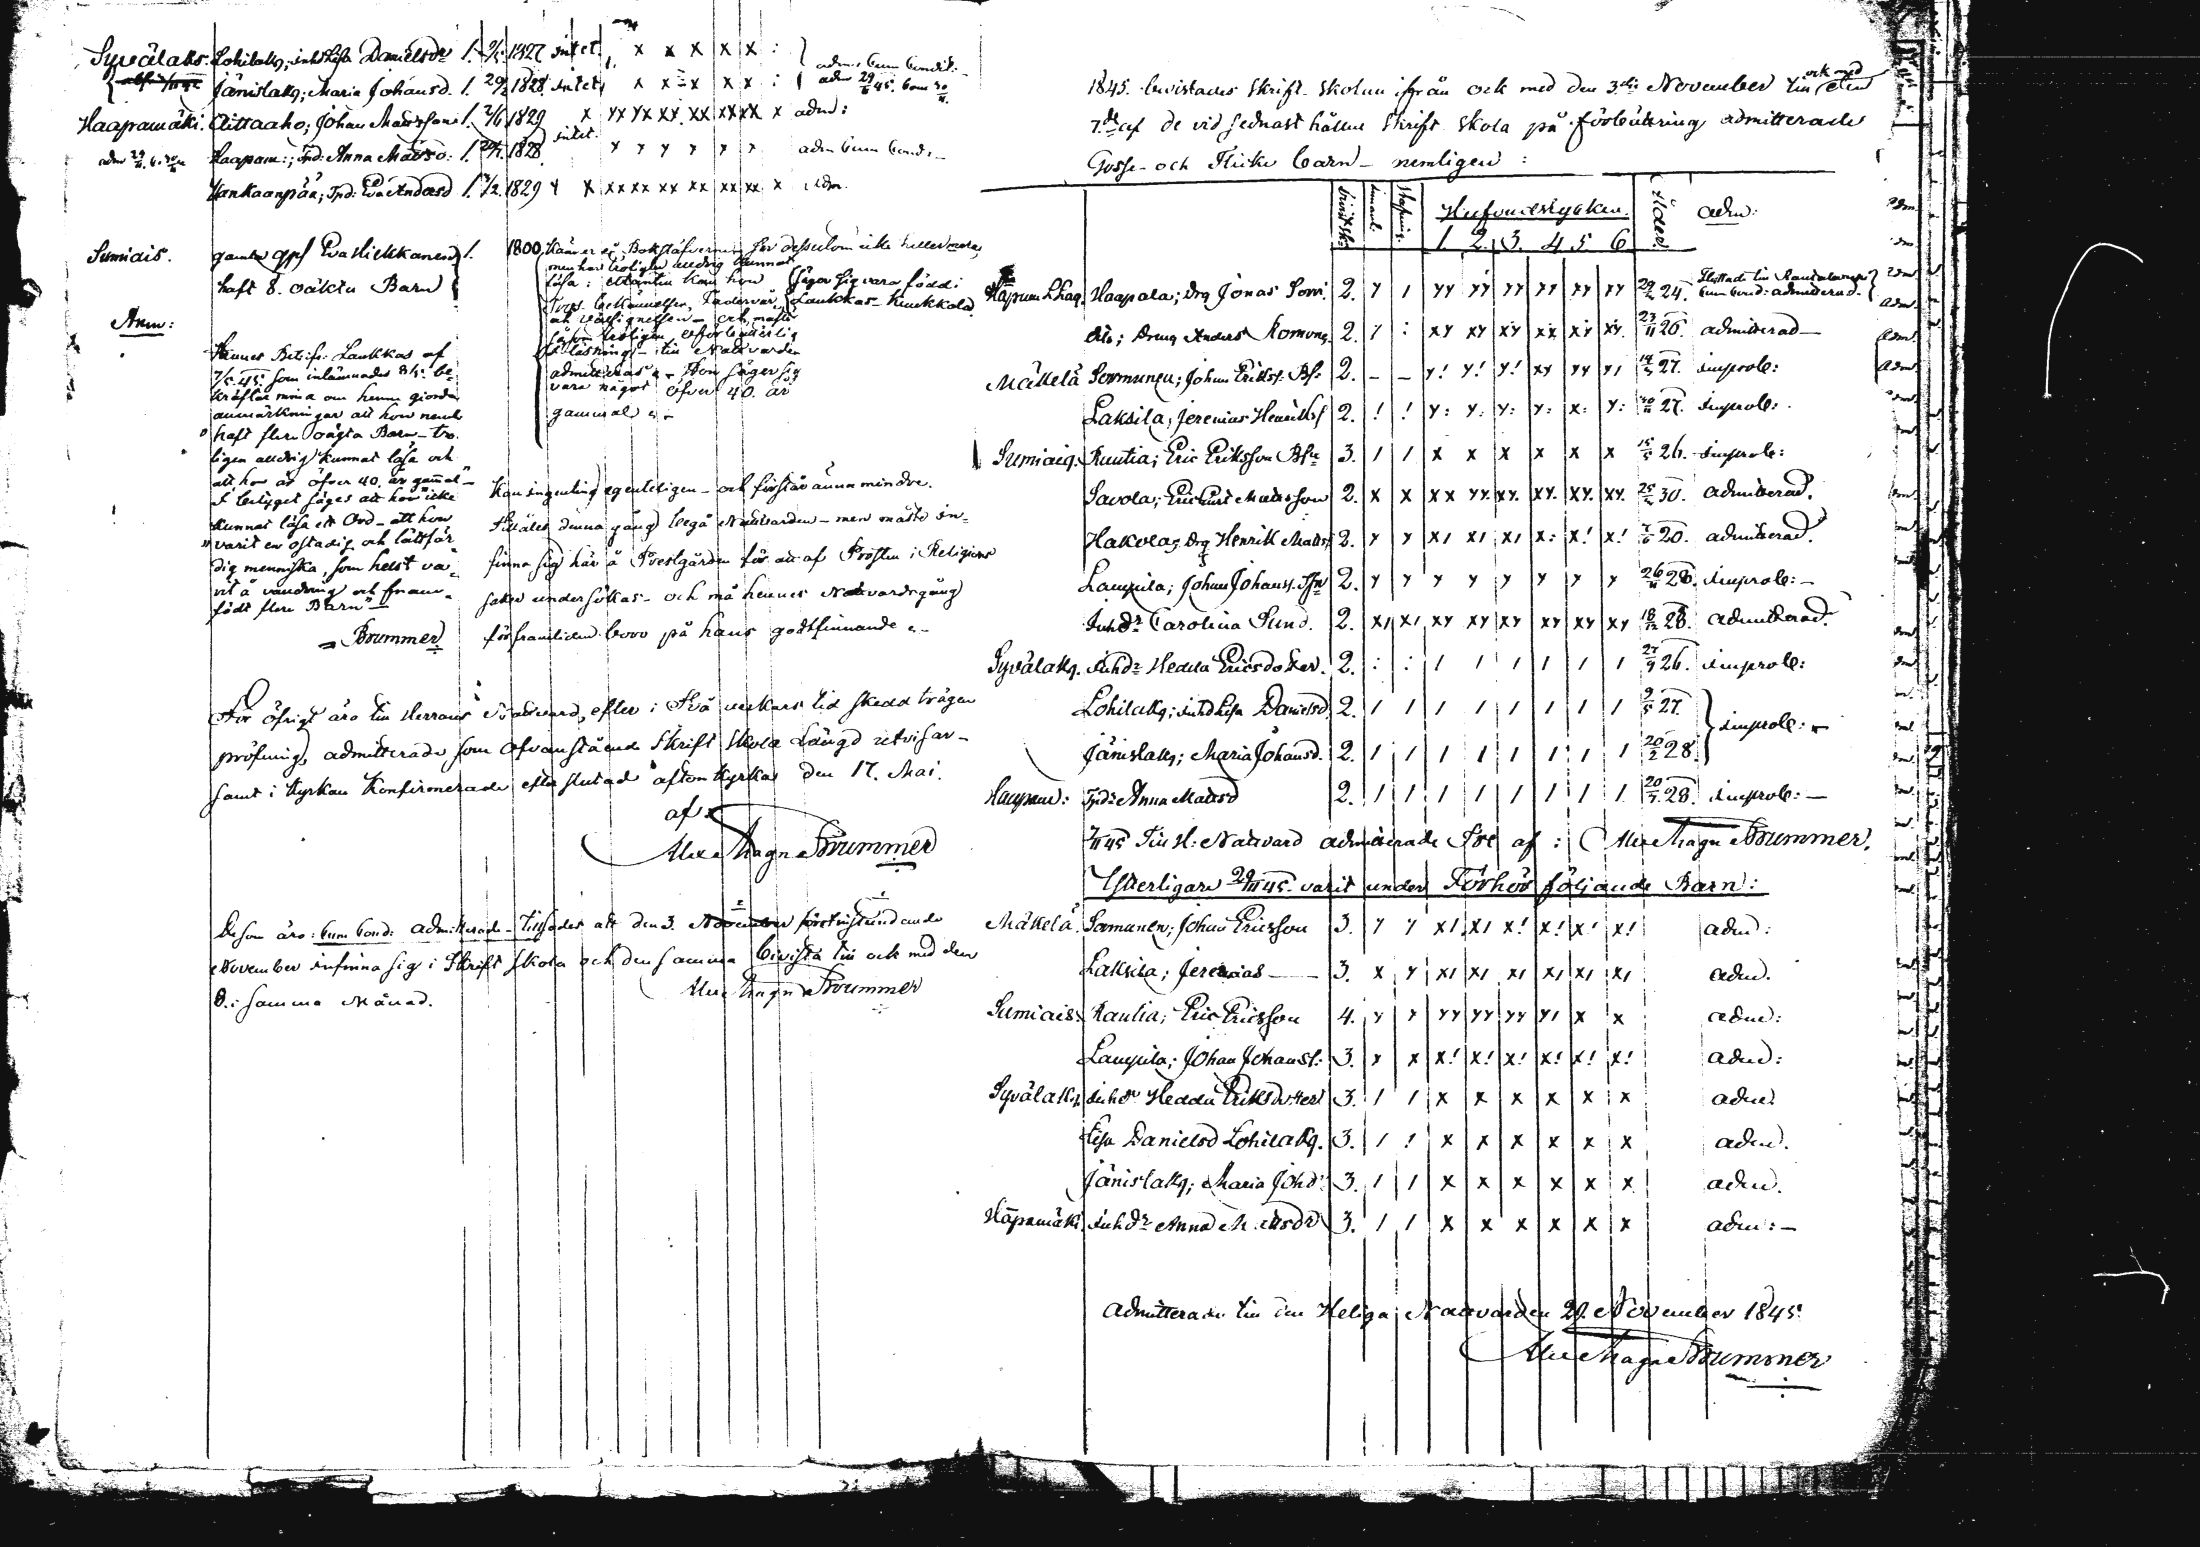 Syvälaks. Lohilaks; inhs Lisa Danielsdr 1. 9/5 1827 intet x x x x x : adm: cum condit:
Jänislaks; Maria Johansd. 1. 20/2 1828 intet x x x x x : adm 29/11 45. cum
Haapamäki. Aittaaho; Johan Matsson 1. 7/6 1829 x xx xx xx xx xx x adm:
Haapam:; Tpd: Anna Matsd: 1. 20/7 1828 intet x x x x x x adm cum cond: -
Hankaanpää; Tpd: Eva Andersd 1. 7/2 1829 x x xx xx xx xx xx xx x adm.
Sumiais. gamla qpf Eva Hiekkanen 1. 1800 känner ej Bokstäfverna för dessutom icke heller mera,
haft 8. oäkta Barn
men har troligen aldrig kunnat
läsa: utantill kan hon
Säger sig vara född i
Laukkas Kuukkala
Trosbekännelsen, Fadervår,
och välsignelsen - och måste
såsom troligen oförbätterlig
i läsning - till Nattvarden
admitteras - Hon säger sig
vara något öfver 40. år
gammal
Anm:
Hennes Betyg fr. Laukkas af
7/5 45. som inlämnades 8/5 be-
kräftar mina om henne gjorda
anmärkningar att hon neml.
haft flere oägta Barn - tro-
ligen aldrig kunnat läsa och
att hon är öfver 40. år gammal -
I betyget säges att hon icke
kunnat läsa ett Ord - att hon
varit en ostadig och lättfär-
dig menniska, som helst va-
rit å vandring och fram-
födt flere Barn"
Brummer
Kan ingenting egenteligen - och förstår ännu mindre.
Tilläts denna gång begå Nattvarden - men måste in-
finna sig här å Prestgården för att af Prosten i Religions
saker undersökas - och må hennes Nattvardsgång
för framtiden bero på hans godtfinnande
För öfrigt äro till Herrans Nattvard, efter i Två veckors tid skedd trägen
pröfning, admitterade, som Ofvanstående Skrift Skola Längd utvisar -
samt i Kyrkan Konfirmerade efter slutad aftonkyrka den 17. Mai.
af:
Alex Magn Brummer
De som äro: cum cond: admitterade - tillsades att den 3. November förstinstundande
November infinna sig i Skrift Skola och den samma bevista till och med den
8. i samma Månad.
Alex Magn Brummer
1845. bevistades Skrift-Skolan ifrån och med den 3die November till och med den
7de af de vid sednast hållne Skrift Skola på förbättring admitterade
Gosse- och Flicke barn - nemligen:
Hufvudstycken. Ålder adm:
1. 2. 3. 4 5 6
Haapala; Drg Jonas Somi. 2. x / xx xx xx xx xx xx 29/2 24. Flyttade till Rautalampi cum cond: admitterad.
dito; Dreng Anders Romung. 2. x : xx xx xx xx xx xx. 23/11 26. admitterad -
Mäkelä Sormunen; Johan Eriks: Bs. 2. - - x! x! x! xx xx x/ 14/5 27. improb:
Laksila; Jeremias Henriks 2. ! ! x: x: x: x: x: x: 27. improb:
Sumiais. Rautia; Eric Eriksson Bsn 3. / / x x x x x x 15/5 26. improb:
Savola; Eric Matsson 2. x x xx xx xx. xx. xx. xx. 25/2 30. admitterad.
Hakola; Drg Henrik Matss 2. x x x/ x/ x/ x: x! x! 7/6 20. admitterad.
Lampila; Johan Johans. 2. x x x x x x x x 26/11 28. improb: -
Inhdr Carolina Sund. 2. x/ x/ xx xx xx xx xx xx 18/12 28. admitterad.
Syvälaks. Inhdr Hedda Ericsdotter. 2. : : / / / / / / 27/9 26. improb:
Lohilaks; inhd Lisa Danielsd. 2. / / / / / / / / 9/5 27.
improb: -
Jänislaks; Maria Johansd. 2. / / / / / / / / 20/2 28.
Haapam: Tpdr Anna Matsd 2. / / / / / / / / 20/7 28. improb: -
7/11 45 Till H: Nattvard admitterade Tre af: Alex Magn Brummer.
Ytterligare 29/11 45. varit under Förhör följande Barn:
Mäkelä. Sormunen; Johan Ericsson 3. x x x/ x/ x! x! x! x! adm:
Laksila; Jeremias - 3. x x x/ x/ x/ x/ x/ x/ adm.
Sumiais: Rautia; Eric Ericsson 4. x x xx xx xx x/ x x adm:
Lampila; Johan Johanss: 3. x x x! x! x! x! x! x! adm:
Syvälaks. inhdr Hedda Eriksdotter 3. / / x x x x x x adm:
Lisa Danielsd Lohilaks. 3. / / x x x x x x adm.
Jänislaks; Maria Johd. 3. / / x x x x x x adm.
Hapamäki. inhdr Anna Matsdr 3. / / x x x x x x adm: -
Admitterade till den Heliga Nattvarden 29. November 1845
Alex Magn Brummer